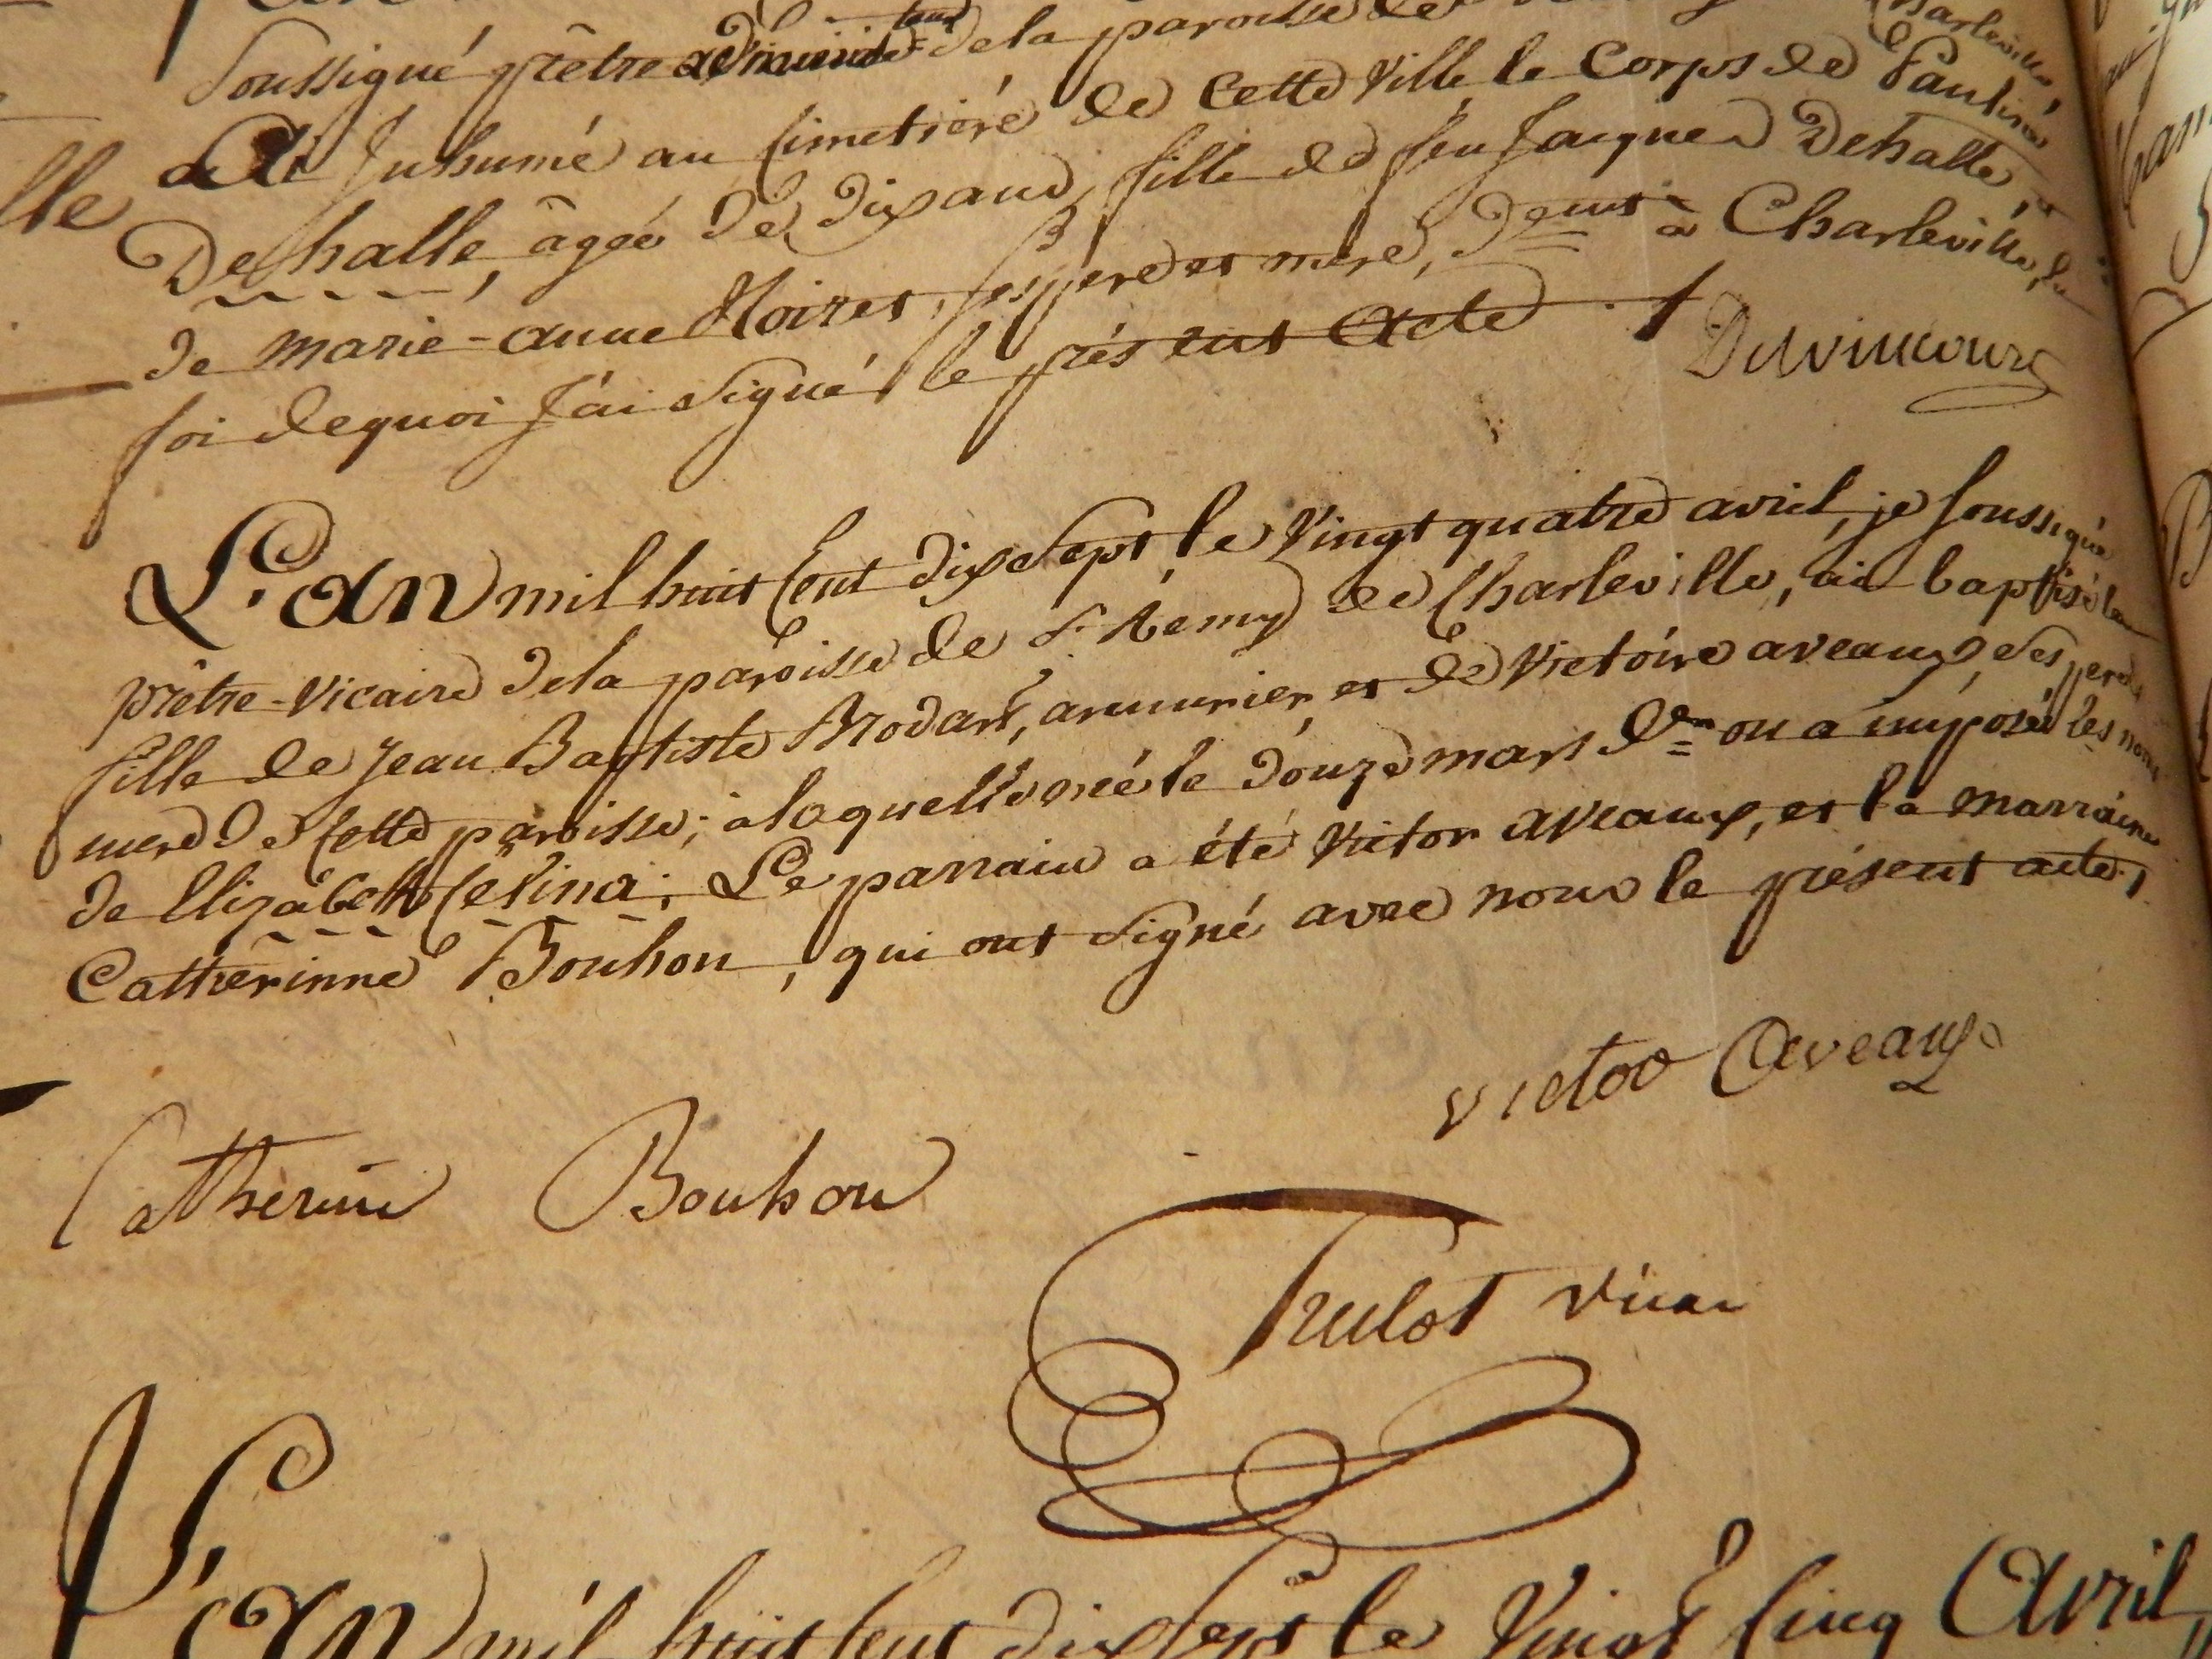 soussigné prêtre de la paroisse de
Charleville,
ai Inhumé au Cimetiére de Cette Ville le Corps de Pauline
Dehalle, âgée de dix ans, fille de feu Jacques Dehalle, et
de marie-anne Noizet, ses pere et mere, dem.ant à Charleville, en
foi dequoi J'ai signé le présent Acte.
Delvincourt
L'an mil huit Cent dix sept, le Vingt quatre avril, je soussigné
prêtre-Vicaire de la paroisse de St Remy de Charleville, ai baptisé la
fille de Jean Baptiste Brodart, armurier et de Victoire aveaux, ses pere et
mere de Cette paroisse; à laquelle née le douze mars d.er on a imposé les noms
de Elizabeth Celina; Le parrain a été Victor aveaux, et la marraine
Catherinne Bouhon, qui ont signé avec nous le présent acte.
Victor Aveaux
Catherine Bouhon
Trulot Vicaire
L'an mil huit Cent dix Sept le Vingt Cinq Avril,